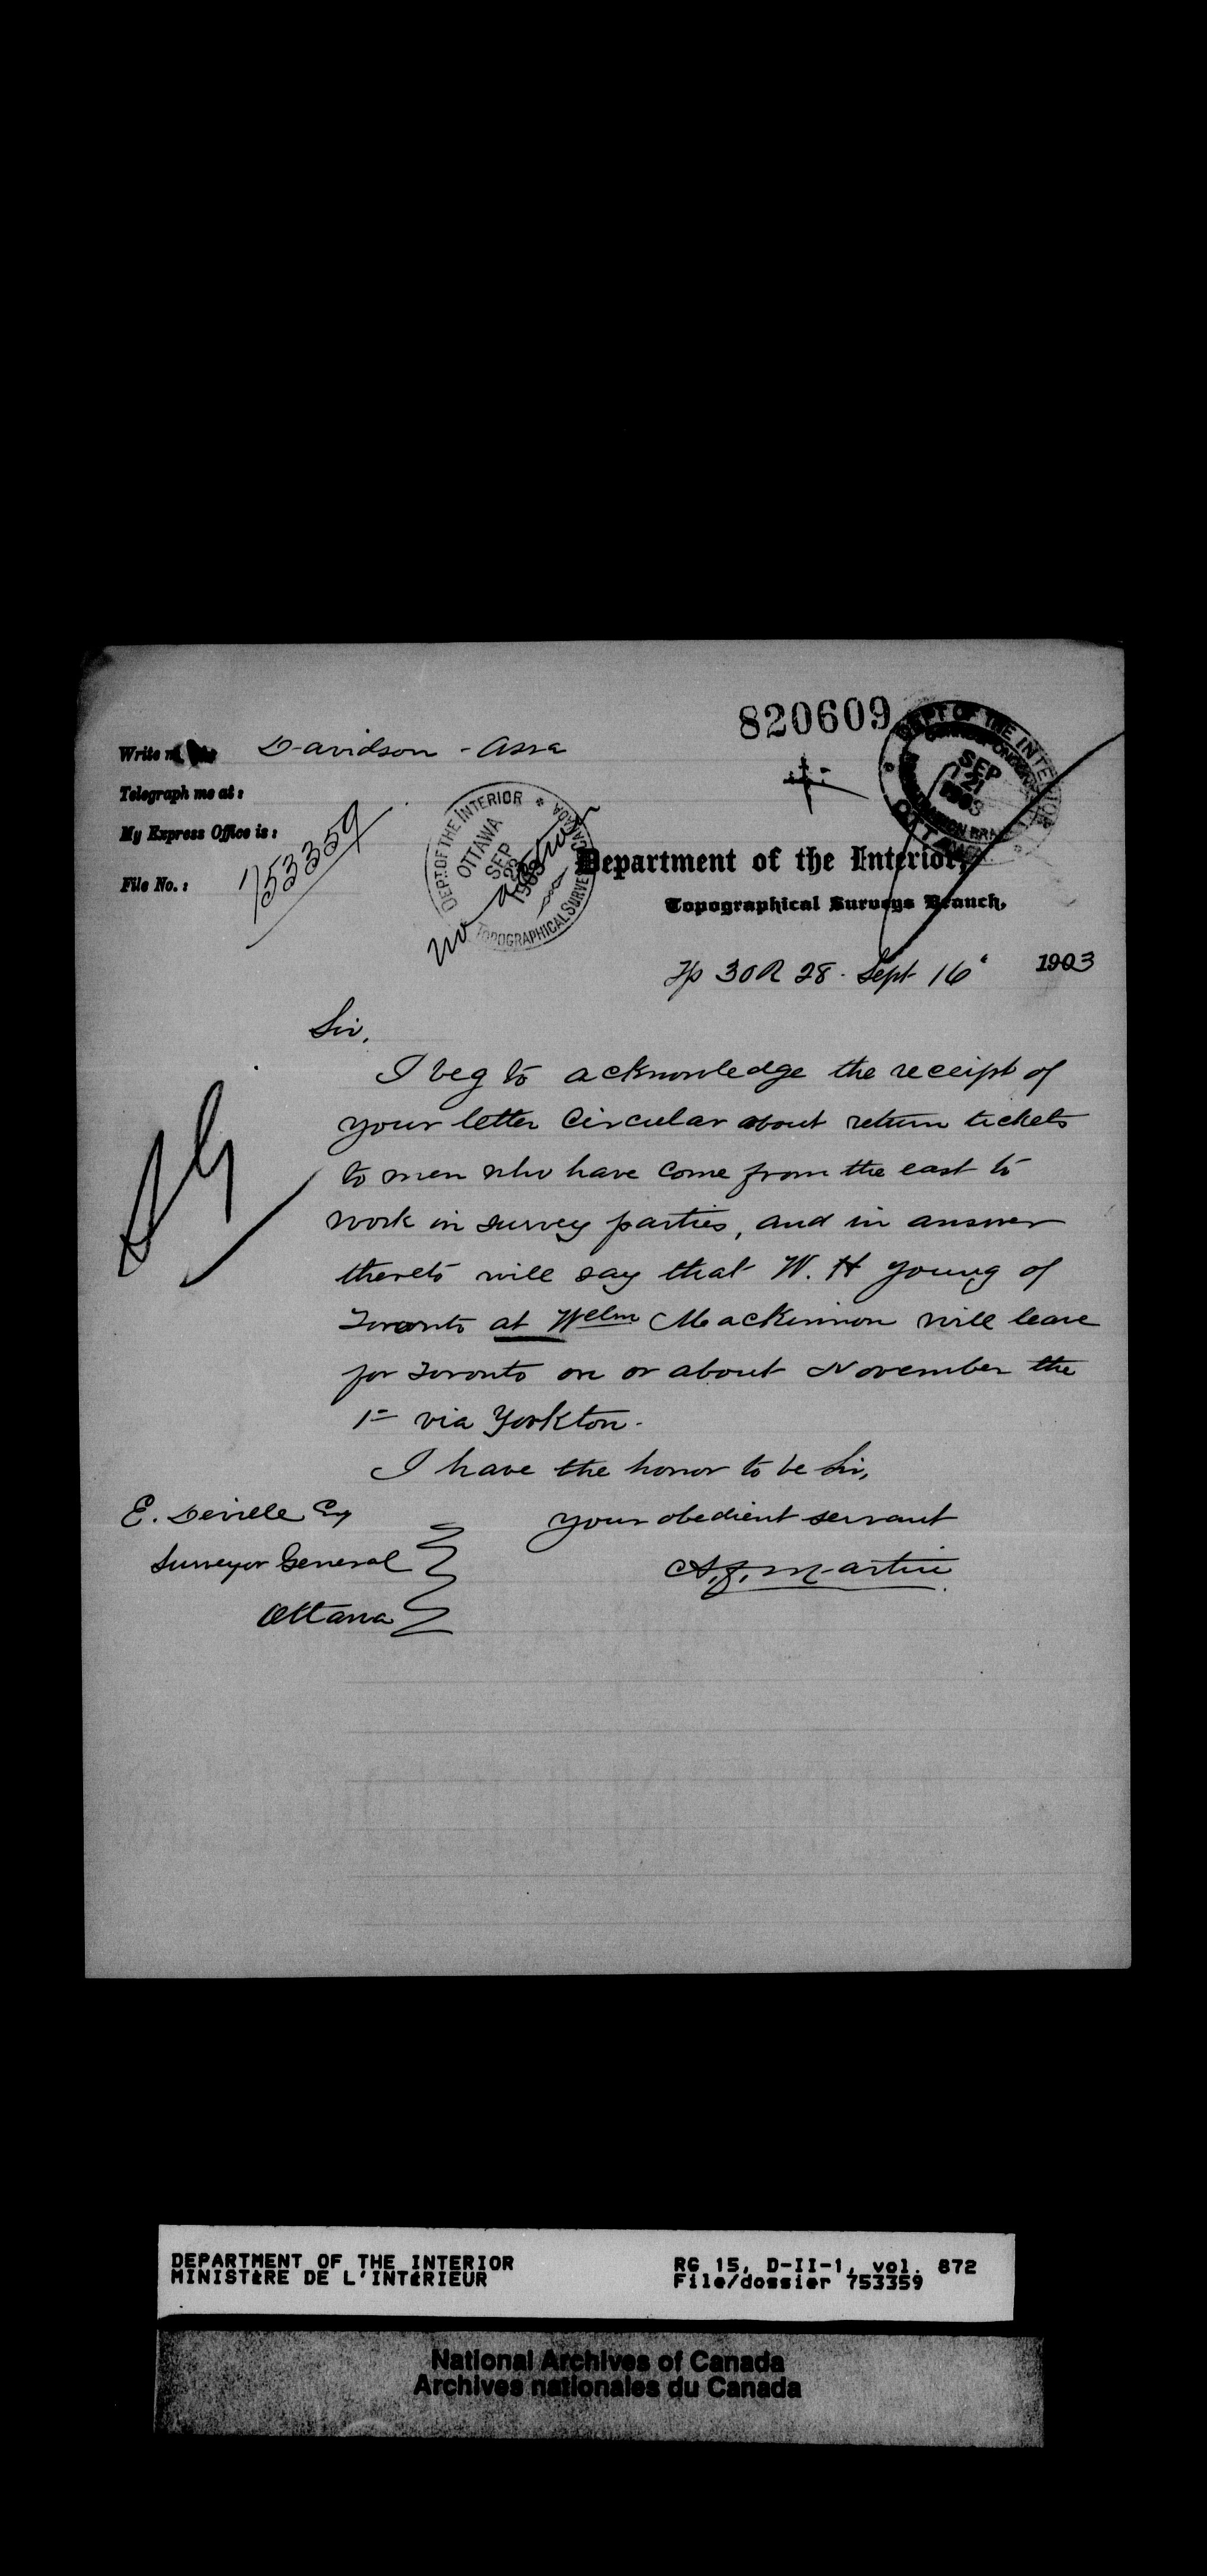 820609
Write me Davidson - Assa
Telegraph me at:
My Express Office is:
File No.: 753359
DEPT. OF THE INTERIOR
OTTAWA
SEP
22
1903
TOPOGRAPHICAL SURVEYS
no action
DEPT OF THE INTERIOR
SEP
21
1903
OTTAWA
Department of the Interior,
Topographical Surveys Branch,
Tp 30 R 28 - Sept 16 1903
Sir,
I beg to acknowledge the receipt of
your letter Circular about return tickets
to men who have come from the east to
work in survey parties, and in answer
thereto will say that W. H Young of
Toronto at Welm MacKinnon will leave
for Toronto on or about November the
1= via Yorkton-
I have the honor to be Sir,
your obedient servant
A.J. Martin
E. Deville Esq
Surveyor General
Ottawa
DEPARTMENT OF THE INTERIOR
MINISTÈRE DE L'INTÉRIEUR
RG 15, D-II-1, vol. 872
File/dossier 753359
National Archives of Canada
Archives nationales du Canada